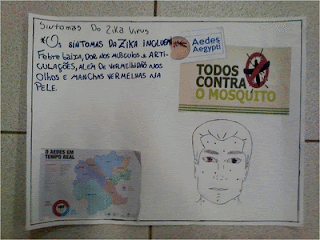 Sintomas Do Zika Virus
Os sintomas do Zika incluem
Febre baixa, dor nos musculos e arti-
culações, além de vermelhidão nos
olhos e manchas vermelhas na
pele.
Aedes
Aegypti
TODOS
CONTRA
O MOSQUITO
O AEDES EM
TEMPO REAL